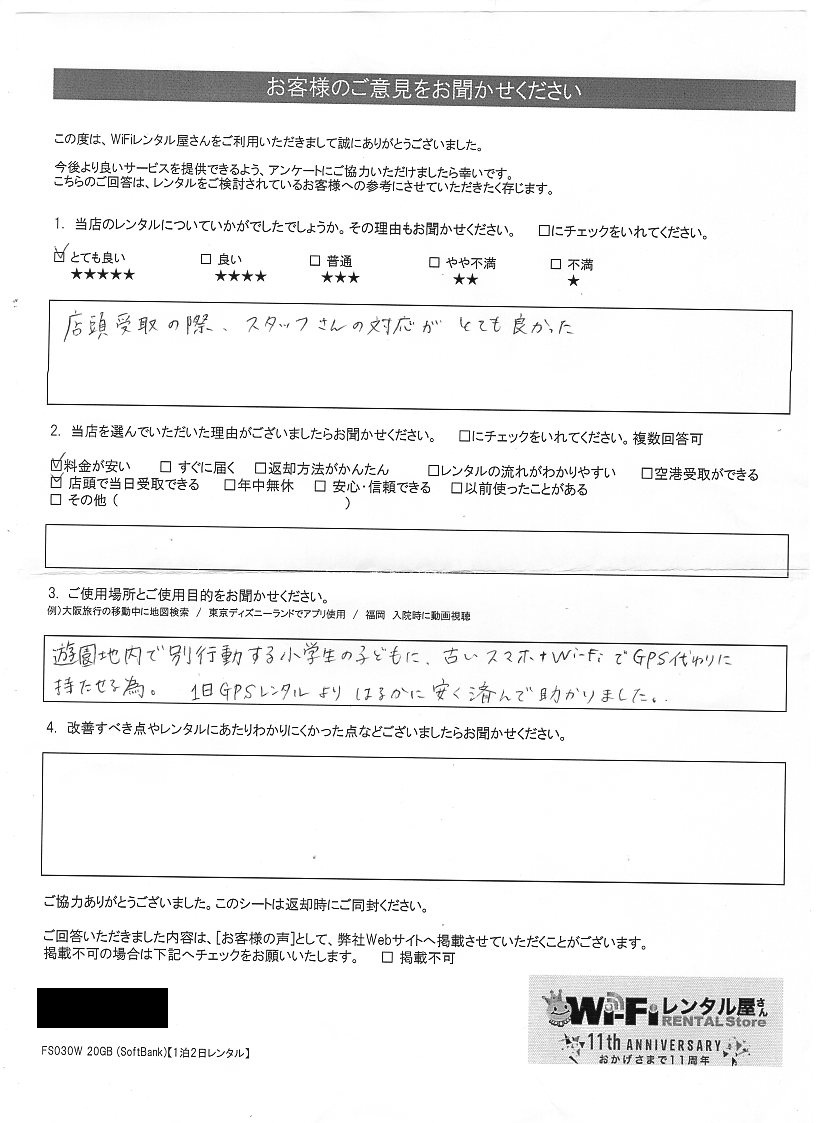 お客様のご意見をお聞かせください
この度は、WiFiレンタル屋さんをご利用いただきまして誠にありがとうございました。
今後より良いサービスを提供できるよう、アンケートにご協力いただけましたら幸いです。
こちらのご回答は、レンタルをご検討されているお客様への参考にさせていただきたく存じます。
1. 当店のレンタルについていかがでしたでしょうか。その理由もお聞かせください。 □にチェックをいれてください。
☑ とても良い □ 良い □ 普通 □ やや不満 □ 不満
★★★★★ ★★★★ ★★★ ★★ ★
店頭受取の際、スタッフさんの対応がとても良かった
2. 当店を選んでいただいた理由がございましたらお聞かせください。 □にチェックをいれてください。複数回答可
☑料金が安い □ すぐに届く □返却方法がかんたん □レンタルの流れがわかりやすい □空港受取ができる
☑ 店頭で当日受取できる □年中無休 □ 安心・信頼できる □以前使ったことがある
□ その他 ( )
3. ご使用場所とご使用目的をお聞かせください。
例)大阪旅行の移動中に地図検索 / 東京ディズニーランドでアプリ使用 / 福岡 入院時に動画視聴
遊園地内で別行動する小学生の子どもに、古いスマホ+Wi-FiでGPS代わりに
持たせる為。 1日GPSレンタルよりはるかに安く済んで助かりました。
4. 改善すべき点やレンタルにあたりわかりにくかった点などございましたらお聞かせください。
ご協力ありがとうございました。このシートは返却時にご同封ください。
ご回答いただきました内容は、[お客様の声]として、弊社Webサイトへ掲載させていただくことがございます。
掲載不可の場合は下記へチェックをお願いいたします。 □ 掲載不可
Wi-Fiレンタル屋さん
RENTAL Store
11th ANNIVERSARY
おかげさまで11周年
FS030W 20GB (SoftBank)【1泊2日レンタル】